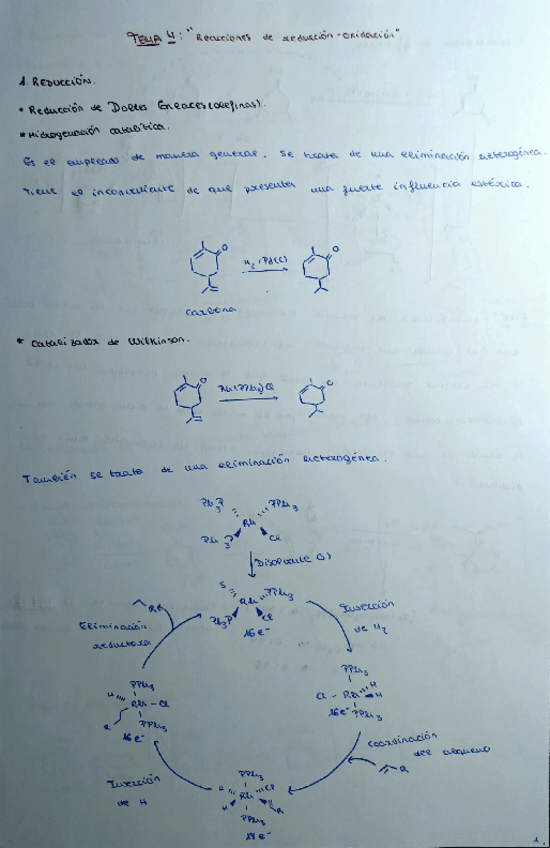 TEMA 4: "Reacciones de reducción-oxidación"
1. REDUCCIÓN.
• Reducción de Dobles Enlaces (olefinas).
* Hidrogenación catalítica.
Es el empleado de manera general. Se trata de una eliminación heterogénea.
Tiene el inconveniente de que presenta una fuerte influencia estérica.
O
H2, Pd(C)
O
Carbona
* Catalizador de Wilkinson.
O
Rh(PPh3)3Cl
También se trata de una eliminación heterogénea.
Ph3P PPh3
Rh
Ph3P Cl
Disolvente (S)
S PPh3
Rh
Ph3P Cl
16 e-
Inserción
de H2
PPh3
Cl - Rh H
H
16 e- PPh3
Coordinación
del alqueno
R
PPh3
Rh
H R
PPh3
18 e-
Inserción
de H
PPh3
H Rh - Cl
R PPh3
16 e-
Eliminación
reductora
R
1.